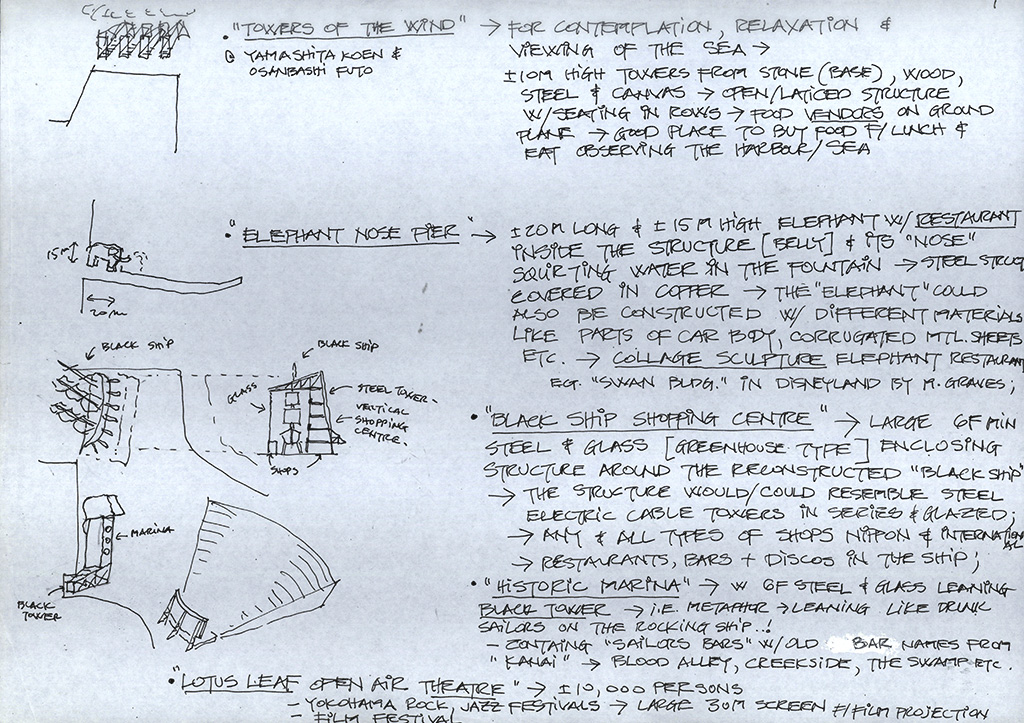 • "TOWERS OF THE WIND" → FOR CONTEMPLATION, RELAXATION &
@ YAMASHITA KOEN &
OSANBASHI FUTO
VIEWING OF THE SEA →
±10M HIGH TOWERS FROM STONE (BASE), WOOD,
STEEL & CANVAS → OPEN/LATICED STRUCTURE
W/SEATING IN ROWS → FOOD VENDORS ON GROUND
PLANE → GOOD PLACE TO BUY FOOD F/LUNCH &
EAT OBSERVING THE HARBOUR/SEA
• "ELEPHANT NOSE PIER" → ±20M LONG & ±15M HIGH ELEPHANT W/ RESTAURANT
INSIDE THE STRUCTURE [BELLY] & ITS "NOSE"
SQUIRTING WATER IN THE FOUNTAIN → STEEL STRUCT
COVERED IN COPPER → THE "ELEPHANT" COULD
ALSO BE CONSTRUCTED W/ DIFFERENT MATERIALS
LIKE PARTS OF CAR BODY, CORRUGATED MTL. SHEETS
ETC. → COLLAGE SCULPTURE ELEPHANT RESTAURANT
EG. "SWAN BLDG." IN DISNEYLAND BY M. GRAVES;
15M
20M
BLACK SHIP
BLACK SHIP
GLASS
STEEL TOWER -
VERTICAL
SHOPPING
CENTRE.
SHOPS
• "BLACK SHIP SHOPPING CENTRE" → LARGE 6F MIN
STEEL & GLASS [GREENHOUSE TYPE] ENCLOSING
STRUCTURE AROUND THE RECONSTRUCTED "BLACK SHIP"
→ THE STRUCTURE WOULD/COULD RESEMBLE STEEL
ELECTRIC CABLE TOWERS IN SERIES & GLAZED;
→ ANY & ALL TYPES OF SHOPS NIPPON & INTERNATIONAL
→ RESTAURANTS, BARS + DISCOS IN THE SHIP;
MARINA
BLACK
TOWER
• "HISTORIC MARINA" → W 6F STEEL & GLASS LEANING
BLACK TOWER → I.E. METAPHOR → LEANING LIKE DRUNK
SAILORS ON THE ROCKING SHIP..!
- CONTAING "SAILORS BARS" W/OLD BAR NAMES FROM
"KANAI" → BLOOD ALLEY, CREEKSIDE, THE SWAMP ETC.
• "LOTUS LEAF OPEN AIR THEATRE" → ±10,000 PERSONS
- YOKOHAMA ROCK, JAZZ FESTIVALS → LARGE 30M SCREEN F/FILM PROJECTION
- FILM FESTIVAL